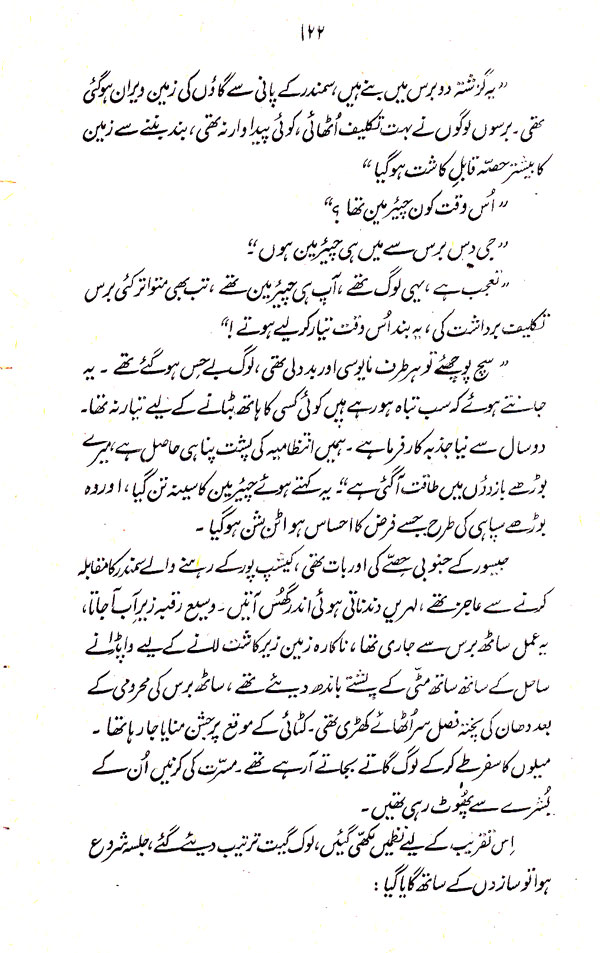 ۱۲۲
”یہ گزشتہ دو برس میں بنے ہیں، سمندر کے پانی سے گاؤں کی زمین ویران ہوگئی
تھی۔ برسوں لوگوں نے بہت تکلیف اُٹھائی، کوئی پیداوار نہ تھی، بند بننے سے زمین
کا بیشتر حصّہ قابلِ کاشت ہوگیا“
”اُس وقت کون چیئرمین تھا؟“
”جی دس برس سے میں ہی چیئرمین ہوں“۔
”تعجب ہے، یہی لوگ تھے، آپ ہی چیئرمین تھے، تب بھی متواتر کئی برس
تکلیف برداشت کی، یہ بند اُس وقت تیار کر لیے ہوتے!“
”سچ پوچھئے تو ہر طرف مایوسی اور بددلی تھی، لوگ بے حِس ہو گئے تھے۔ یہ
جانتے ہوئے کہ سب تباہ ہو رہے ہیں کوئی کسی کا ہاتھ بٹانے کے لیے تیار نہ تھا۔
دو سال سے نیا جذبہ کارفرما ہے۔ ہمیں انتظامیہ کی پشت پناہی حاصل ہے، میرے
بوڑھے بازوؤں میں طاقت آگئی ہے“۔ یہ کہتے ہوئے چیئرمین کا سینہ تن گیا، اور وہ
بوڑھے سپاہی کی طرح جسے فرض کا احساس ہو اٹن شن ہوگیا۔
جیسور کے جنوبی حصّے کی اور بات تھی، کیشب پور کے رہنے والے سمندر کا مقابلہ
کرنے سے عاجز تھے، لہریں دندناتی ہوئی اندر گھُس آتیں۔ وسیع رقبہ زیرِ آب آ جاتا،
یہ عمل ساٹھ برس سے جاری تھا، ناکارہ زمین زیرِ کاشت لانے کے لیے واپڈا نے
ساحل کے ساتھ ساتھ مٹّی کے پشتے باندھ دیئے تھے، ساٹھ برس کی محرومی کے
بعد دھان کی پختہ فصل سر اُٹھائے کھڑی تھی۔ کٹائی کے موقع پر جشن منایا جا رہا تھا۔
میلوں کا سفر طے کر کے لوگ گاتے بجاتے آ رہے تھے۔ مسرت کی کرنیں اُن کے
بُشرے سے پھُوٹ رہی تھیں۔
اِس تقریب کے لیے نظمیں لکھی گئیں، لوک گیت ترتیب دیئے گئے، جلسہ شروع
ہوا تو سازوں کے ساتھ گایا گیا: